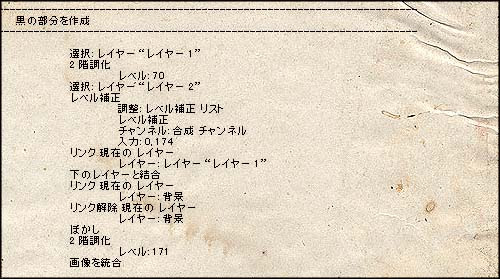 黒の部分を作成
選択: レイヤー “レイヤー 1”
2 階調化
レベル: 70
選択: レイヤー “レイヤー 2”
レベル補正
調整: レベル補正 リスト
レベル補正
チャンネル: 合成 チャンネル
入力: 0, 174
リンク 現在の レイヤー
レイヤー: レイヤー “レイヤー 1”
下のレイヤーと結合
リンク 現在の レイヤー
レイヤー: 背景
リンク解除 現在の レイヤー
レイヤー: 背景
ぼかし
2 階調化
レベル: 171
画像を統合